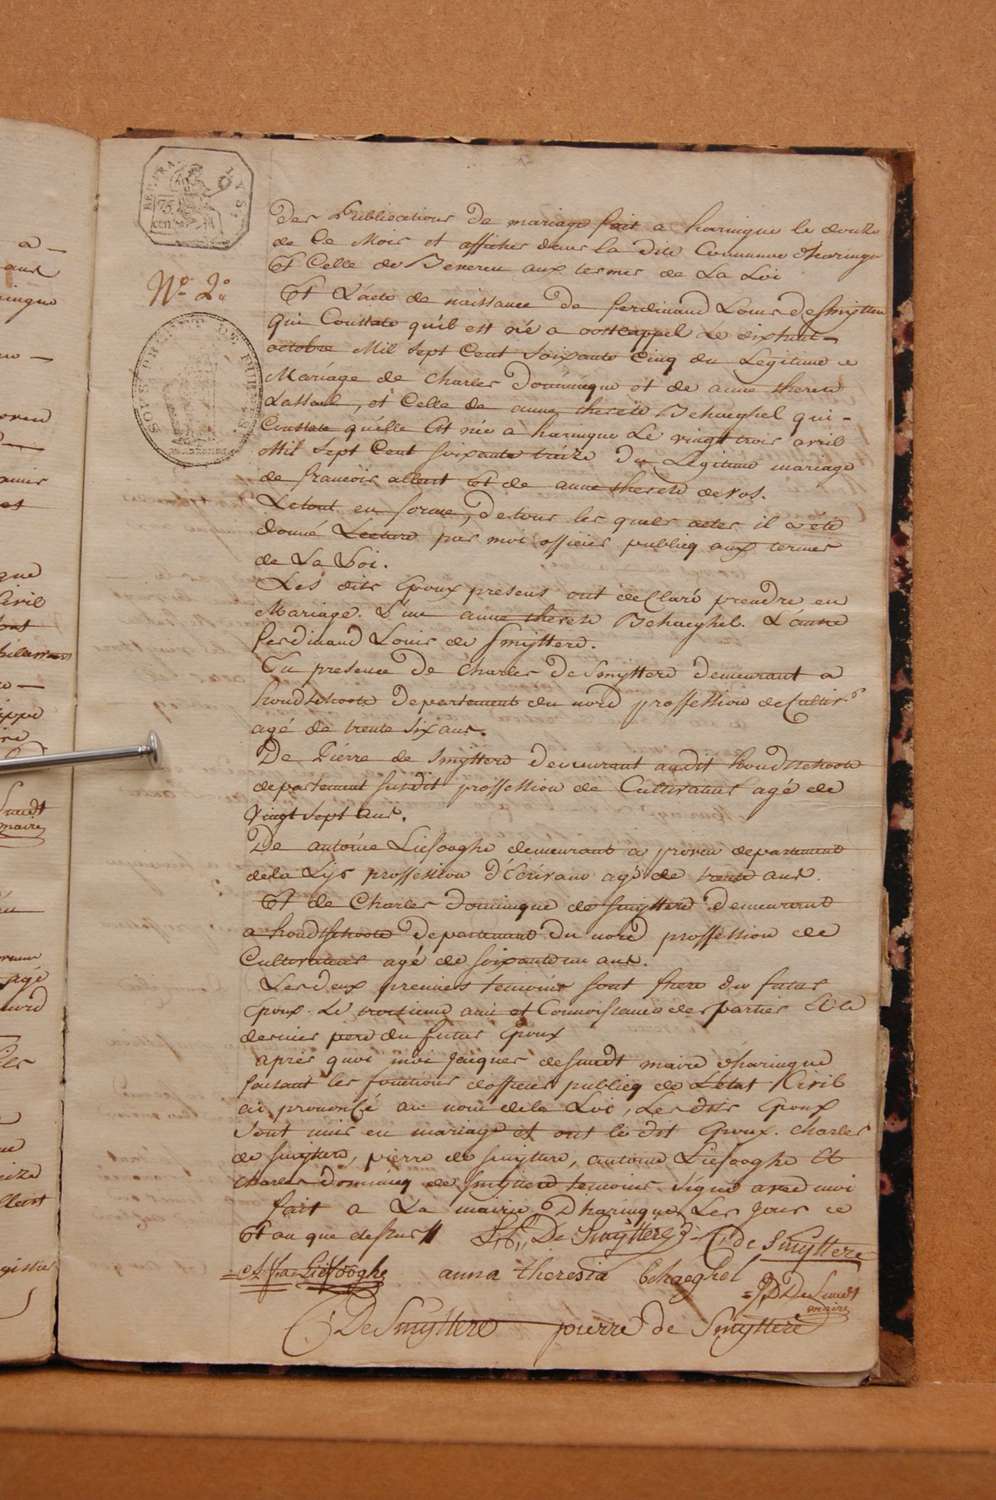 REP. FRA.
75
cen
No. 2.
SOUS PREFET DE FURNES
Des Publications de mariage fait a haringue le douze
de Ce Mois et affiches dans la dite Commune d'haringue
Et Celle de Beveren aux termes de La Loi
Et L'acte de naissance de ferdinand Louis deSmyttere
qui Constate quil est née a oostcappel Le dixhuit
octobre Mil sept Cent soixante Cinq du Legitime
Mariage de charles Dominique et de anne therese
, et Celle de anne therese Behaeghel qui
Constate quélle Est née a haringue Le vingt trois avril
Mil sept Cent soixante treize Du Legitime mariage
de francois allert Et de anne therese devos.
Letout en forme, De tous les quels actes il a été
donné Lecture par moi officier publicq aux termes
de La Loi.
Les dits Epoux presens ont deClaré prendre en
Mariage. L'une anne therese Behaeghel. L'autre
ferdinand Louis de Smyttere.
En presence de Charles deSmyttere demeurant a
hondschoote Departement du nord proffession de Cultivr
agé de trente six ans.
De Pierre de Smyttere demeurant audit hondschoote
departement susdit proffession de Cultivateur agé de
Vingt sept ans.
De antoine Liefooghe demeurant a proven departement
dela Lys proffession d'Ecrivain agé de trente ans.
Et de Charles Dominique de smyttere Demeurant
a hondschoote Departement Du nord proffession de
Cultivateur agé de soixante un ans.
Les deux premiers temoins sont frere du futur
Epoux. Le troisieme ami et Connoissance des parties Et le
dernier pere du futur Epoux
apres quoi moi Jacques deSmedt maire d'haringue
faisant les fonctions d'officier publicq de L'etat Civil
ai prononcé au nom de la Loi, Les dits Epoux
sont unis en mariage et ont le dit Epoux. Charles
de smyttere, pierre de smyttere, antoine Liefooghe Et
charles Dominicq de smyttere temoins signé avec moi
fait a La mairie D'haringue Les Jour
Et an que dessus //
De Smyttere C de Smyttere
Liefooghe anna theresia behaeghel
De Smedt
maire
C DeSmyttere pierre de Smyttere